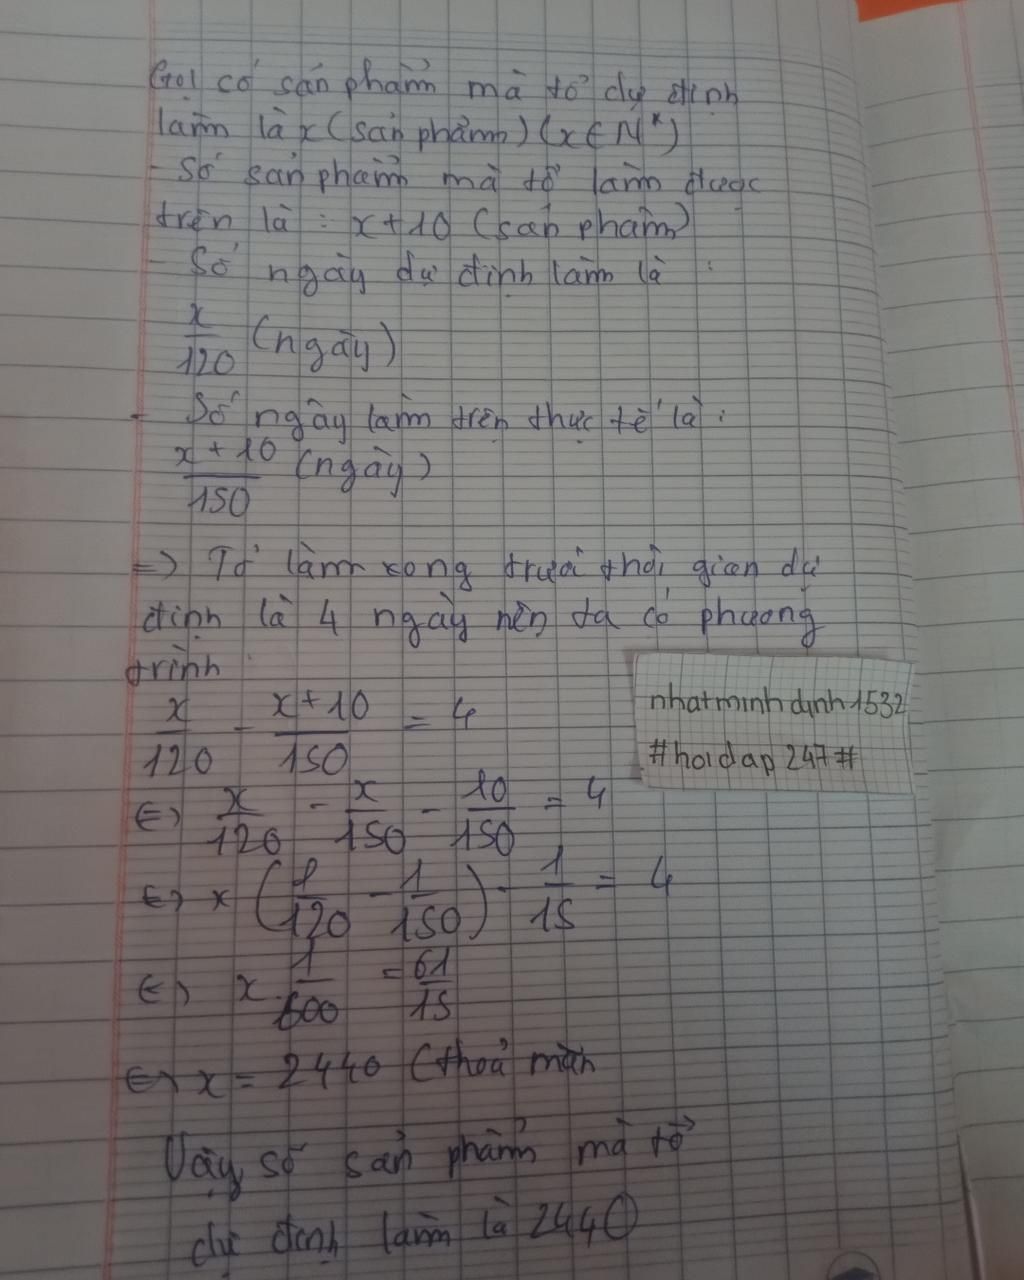 Gọi số sản phẩm mà tổ dự định
làm là x (sản phẩm) (x ∈ N*)
- Số sản phẩm mà tổ làm được
trên là : x + 10 (sản phẩm)
- Số ngày dự định làm là :
x/120 (ngày)
- Số ngày làm trên thực tế là :
x + 10/150 (ngày)
=> Tổ làm xong trước thời gian dự
định là 4 ngày nên ta có phương
trình
x/120 - x + 10/150 = 4
nhatminhdinh1532
#hoidap247#
<=> x/120 - x/150 - 10/150 = 4
<=> x (1/120 - 1/150) - 1/15 = 4
<=> x . 1/600 = 61/15
<=> x = 2440 (thoả mãn
Vậy số sản phẩm mà tổ
dự định làm là 2440